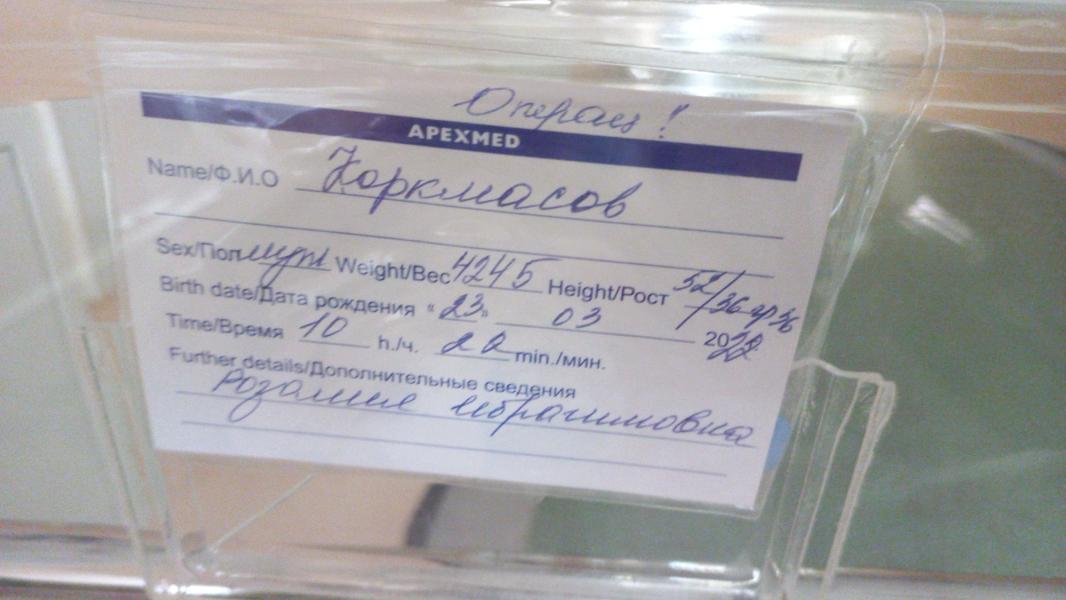 Операц!
APEXMED
Name/Ф.И.О Коркмасов
Sex/Пол муж Weight/Вес 4245 Height/Рост 52/36 гр 36
Birth date/Дата рождения "23" 03 2022
Time/Время 10 h./ч. 22 min./мин.
Further details/Дополнительные сведения
Розалия Ибрагимовна